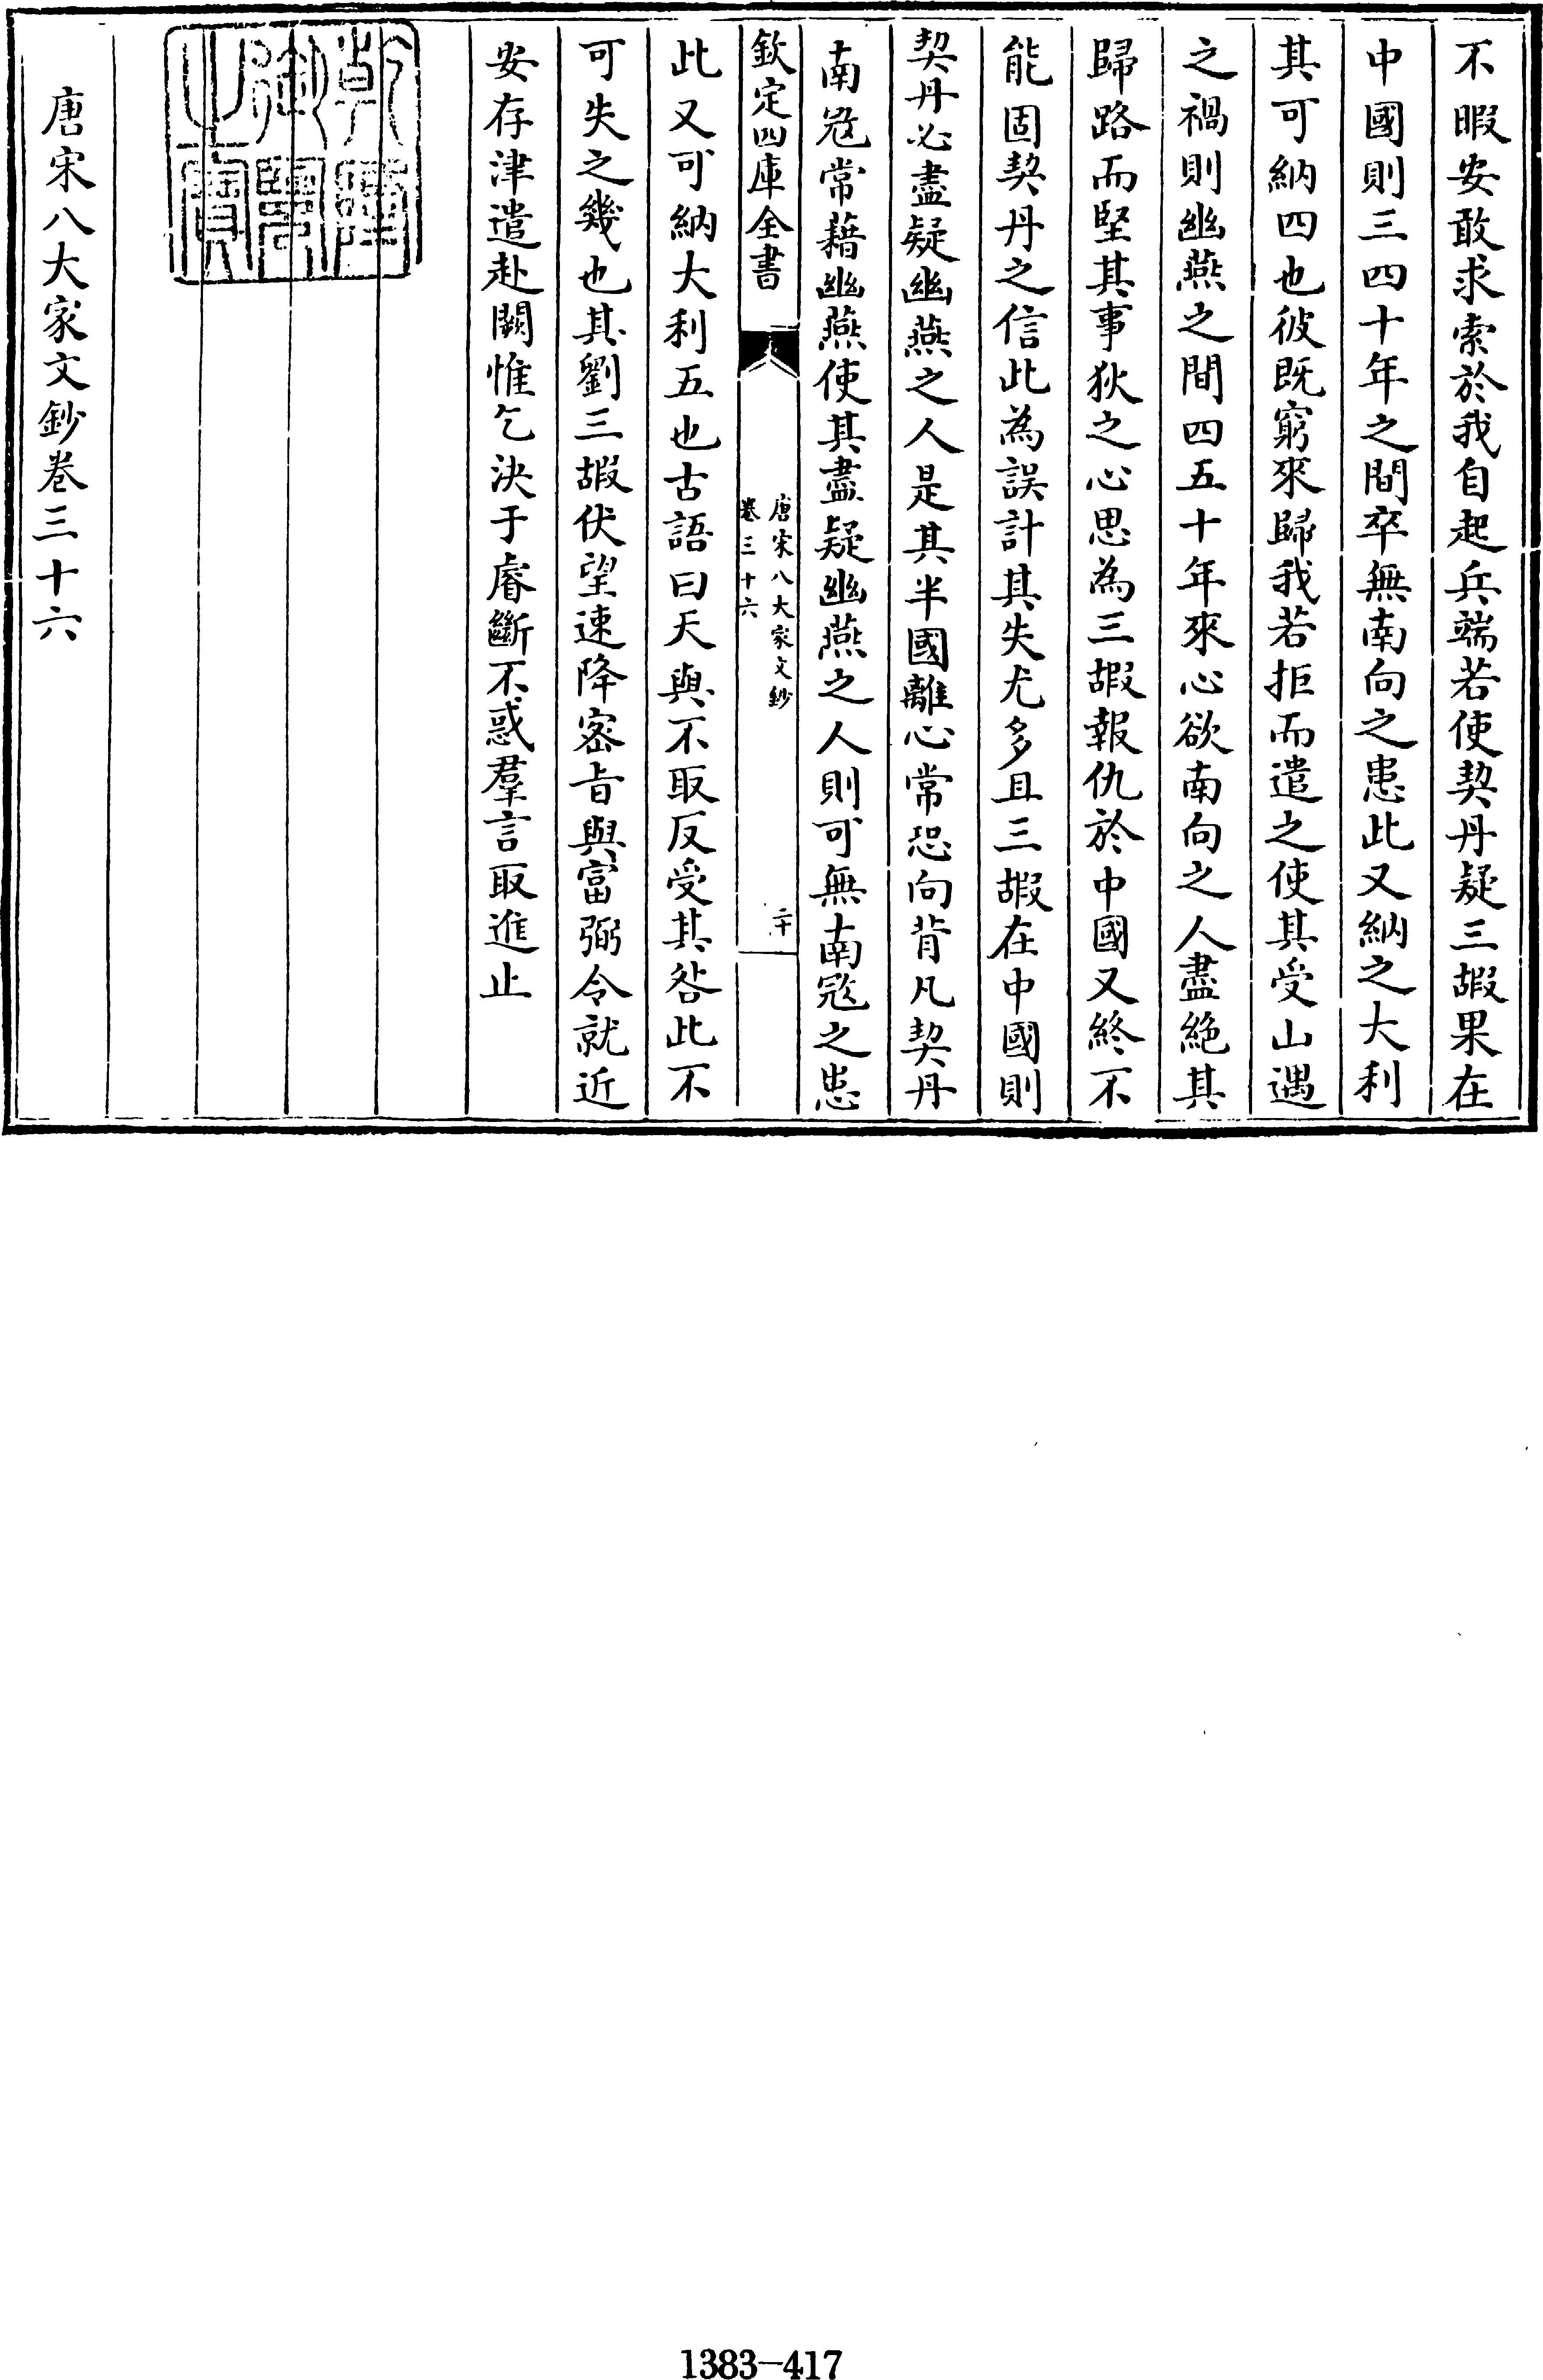 不暇安敢求索於我自起兵端若使契丹疑三嘏果在
中國則三四十年之間卒無南向之患此又納之大利
其可納四也彼既窮來歸我若拒而遣之使其受山遇
之禍則幽燕之間四五十年來心欲南向之人盡絕其
歸路而堅其事狄之心思為三嘏報仇於中國又終不
能固契丹之信此為誤計其失尤多且三嘏在中國則
契丹必盡疑幽燕之人是其半國離心常恐向背凡契丹
南冦常藉幽燕使其盡疑幽燕之人則可無南冦之患
欽定四庫全書
唐宋八大家文鈔
卷三十六
二十
此又可納大利五也古語曰天與不取反受其咎此不
可失之幾也其劉三嘏伏望速降密旨與富弼令就近
安存津遣赴闕惟乞決于睿斷不惑羣言取進止
乾隆御覽之寶
唐宋八大家文鈔卷三十六
1383-417